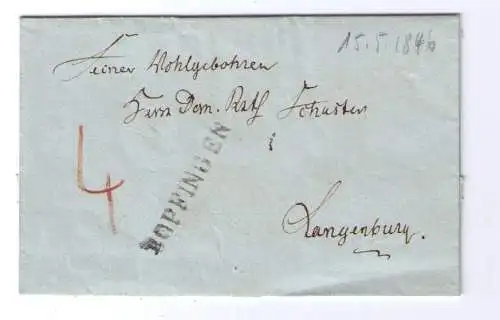 15.5.1846
Seiner Wohlgebohren
Herrn Dom. Rath Schuster
i
4
BOPFINGEN
Langenburg.